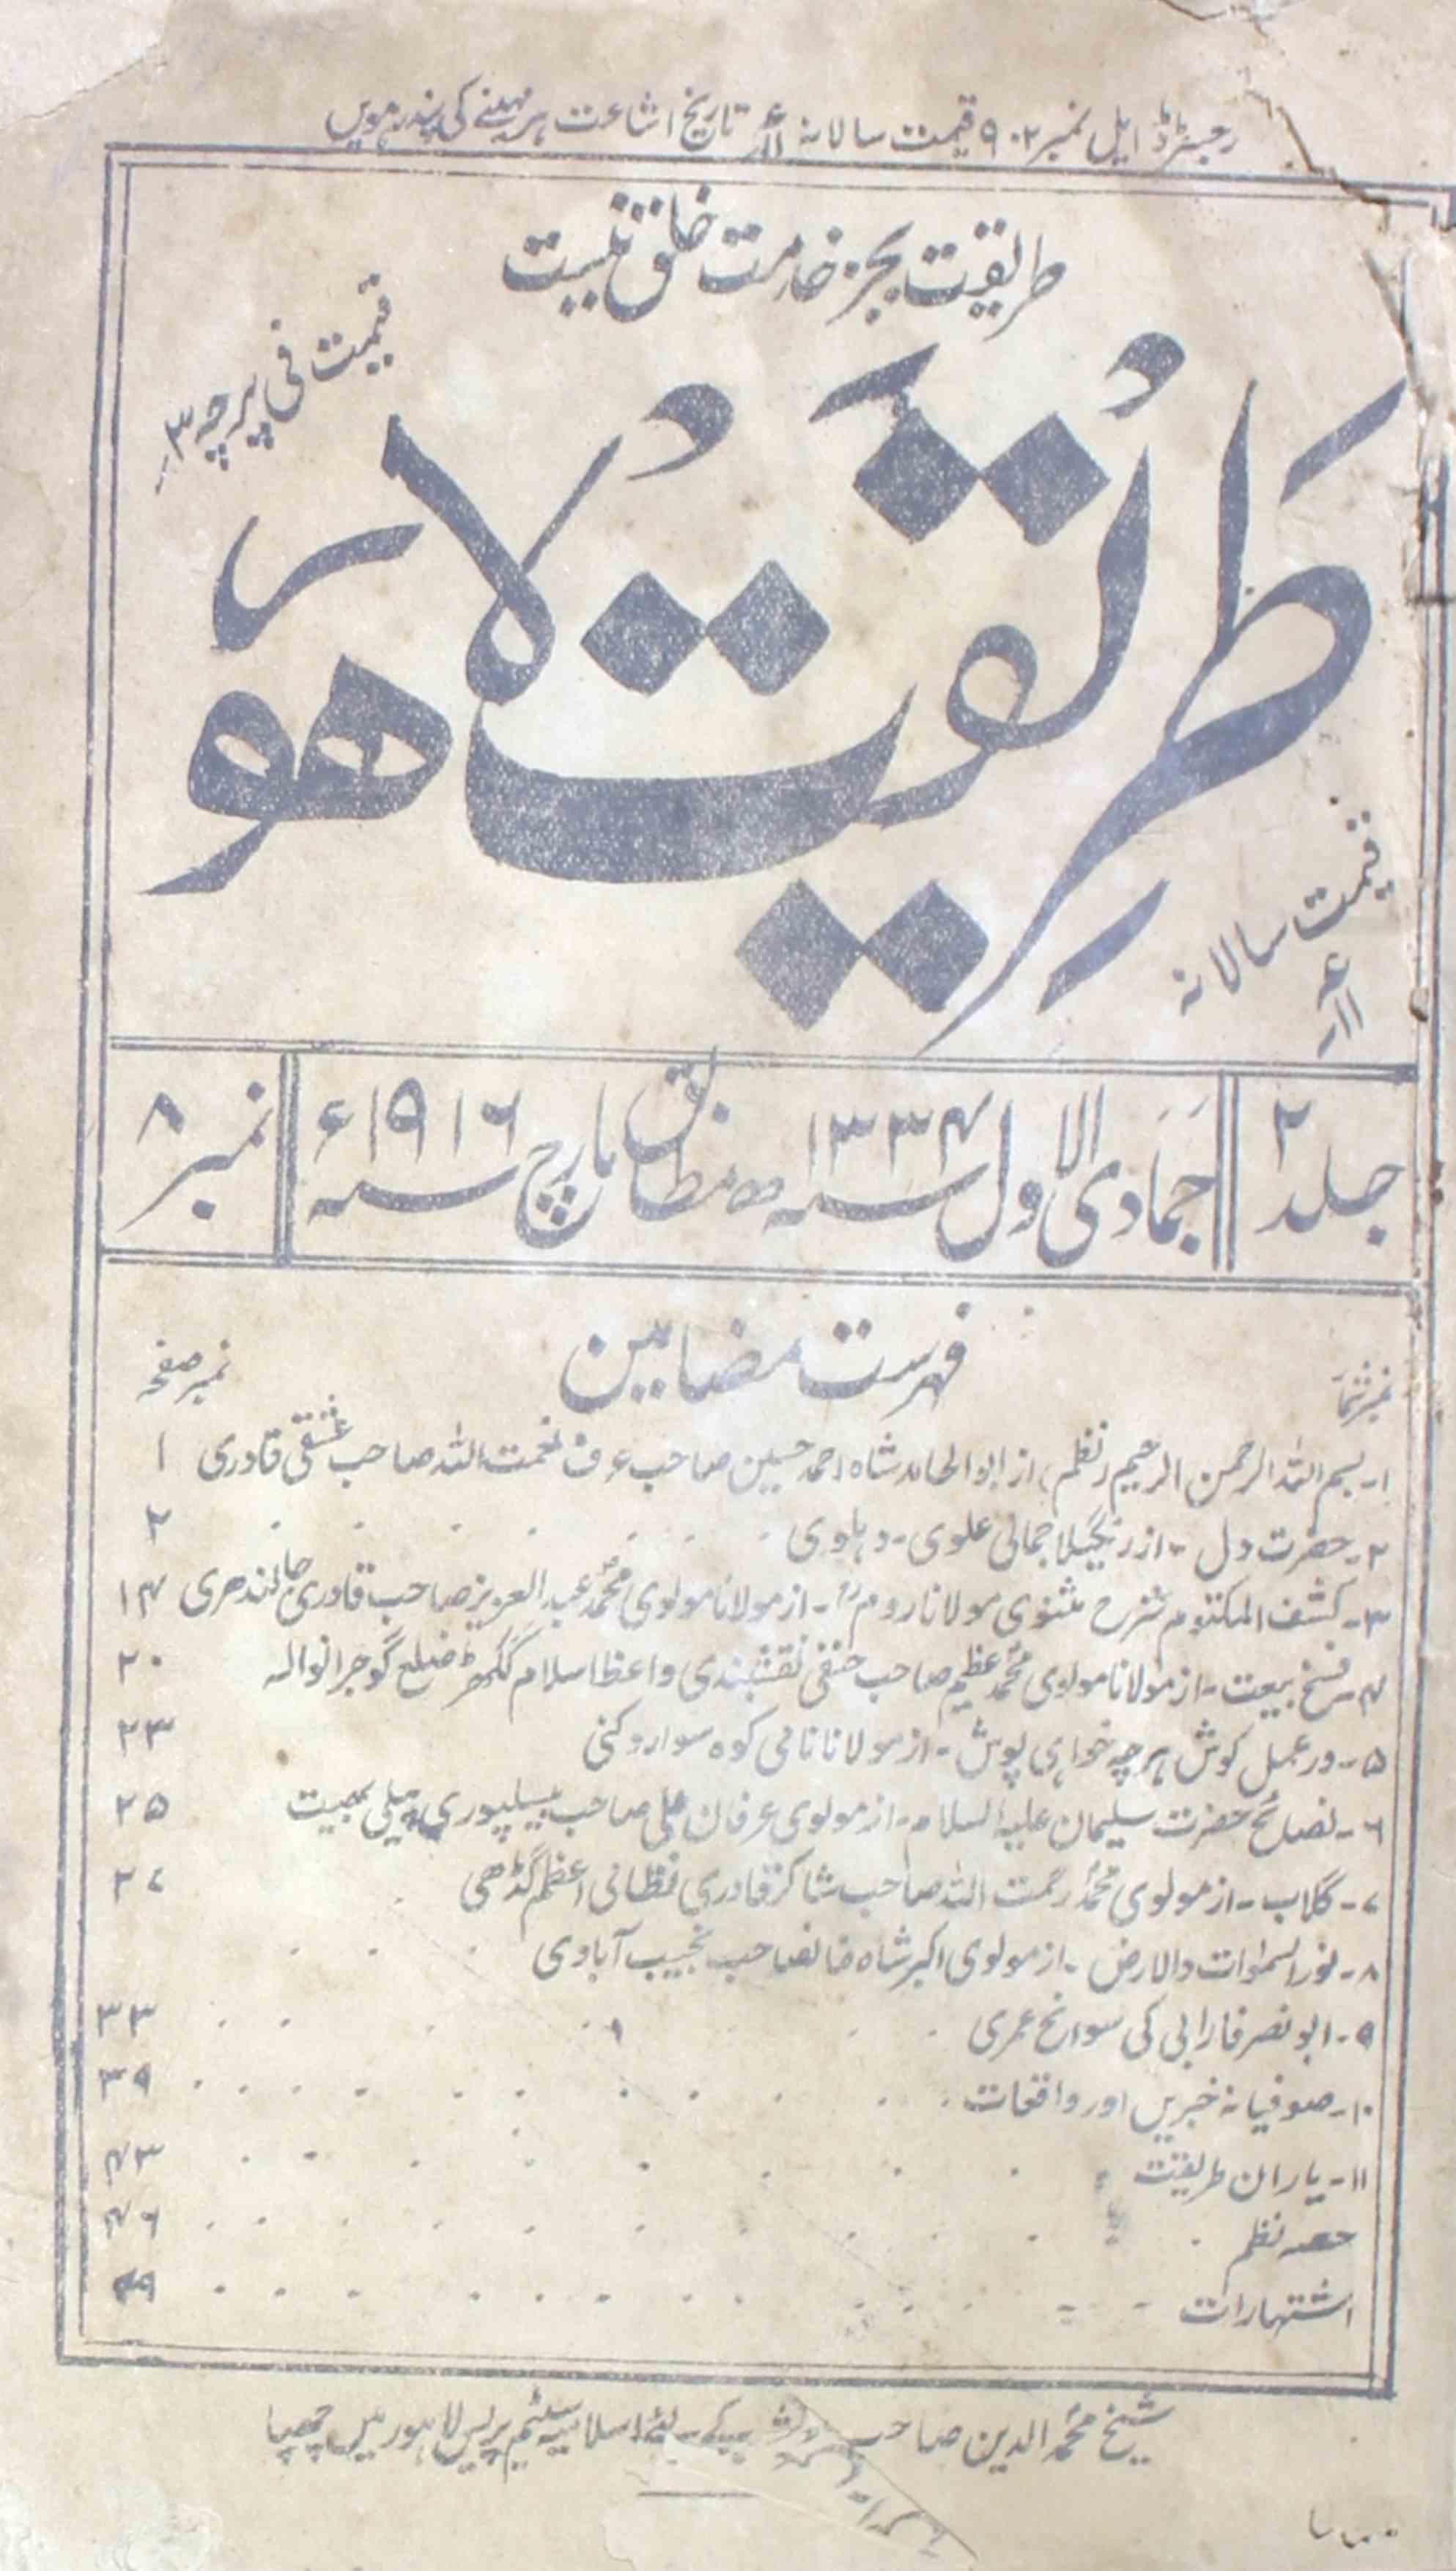 رجسٹرڈ ایل نمبر ۹۰۲ قیمت سالانہ تاریخ اشاعت ہر مہینے کی پندرہویں
طریقت بجز خدمت خلق نیست
قیمت فی پرچہ ۳؍
طَرِیْقَتْ لاہور
قیمت سالانہ
جلد ۲
جمادی الاول سنہ ۱۳۳۴ھ مطابق مارچ سنہ ۱۹۱۶ء
نمبر ۸
فہرست مضامین
نمبر شمار
نمبر صفحہ
۱۔ بسم اللہ الرحمن الرحیم (نظم) از ابوالحامد شاہ احمد حسین صاحب عرف نعمت اللہ صاحب عشقی قادری ۱
۲۔ حضرت دل ۔ از رنگیلا جمالی علوی ۔ دہلوی ۲
۳۔ کشف المکتوم شرح مثنوی مولانا روم ۔ از مولانا مولوی محمد عبدالعزیز صاحب قادری جالندھری ۱۴
۴۔ فسخ بیعت ۔ از مولانا مولوی محمد عظیم صاحب حنفی نقشبندی واعظ اسلام گکھڑ ضلع گوجرانوالہ ۲۰
۵۔ در عمل کوش ہر چہ خواہی پوش ۔ از مولانا نامی کوہ سوار دکنی ۲۳
۶۔ نصائح حضرت سلیمان علیہ السلام ۔ از مولوی عرفان علی صاحب بیسلپوری پیلی بھیت ۲۵
۷۔ گلاب ۔ از مولوی محمد رحمت اللہ صاحب شاکر قادری اعظم گڈھی ۲۷
۸۔ نور السمٰوات والارض ۔ از مولوی اکبر شاہ خانصاحب نجیب آبادی
۹۔ ابو نصر فارابی کی سوانح عمری ۳۳
۱۰۔ صوفیانہ خبریں اور واقعات ۳۹
۱۱۔ یاران طریقت ۴۳
حصہ نظم ۴۶
اشتہارات ۴۹
شیخ محمد الدین صاحب کے لئے اسلامیہ سٹیم پریس لاہور میں چھپا